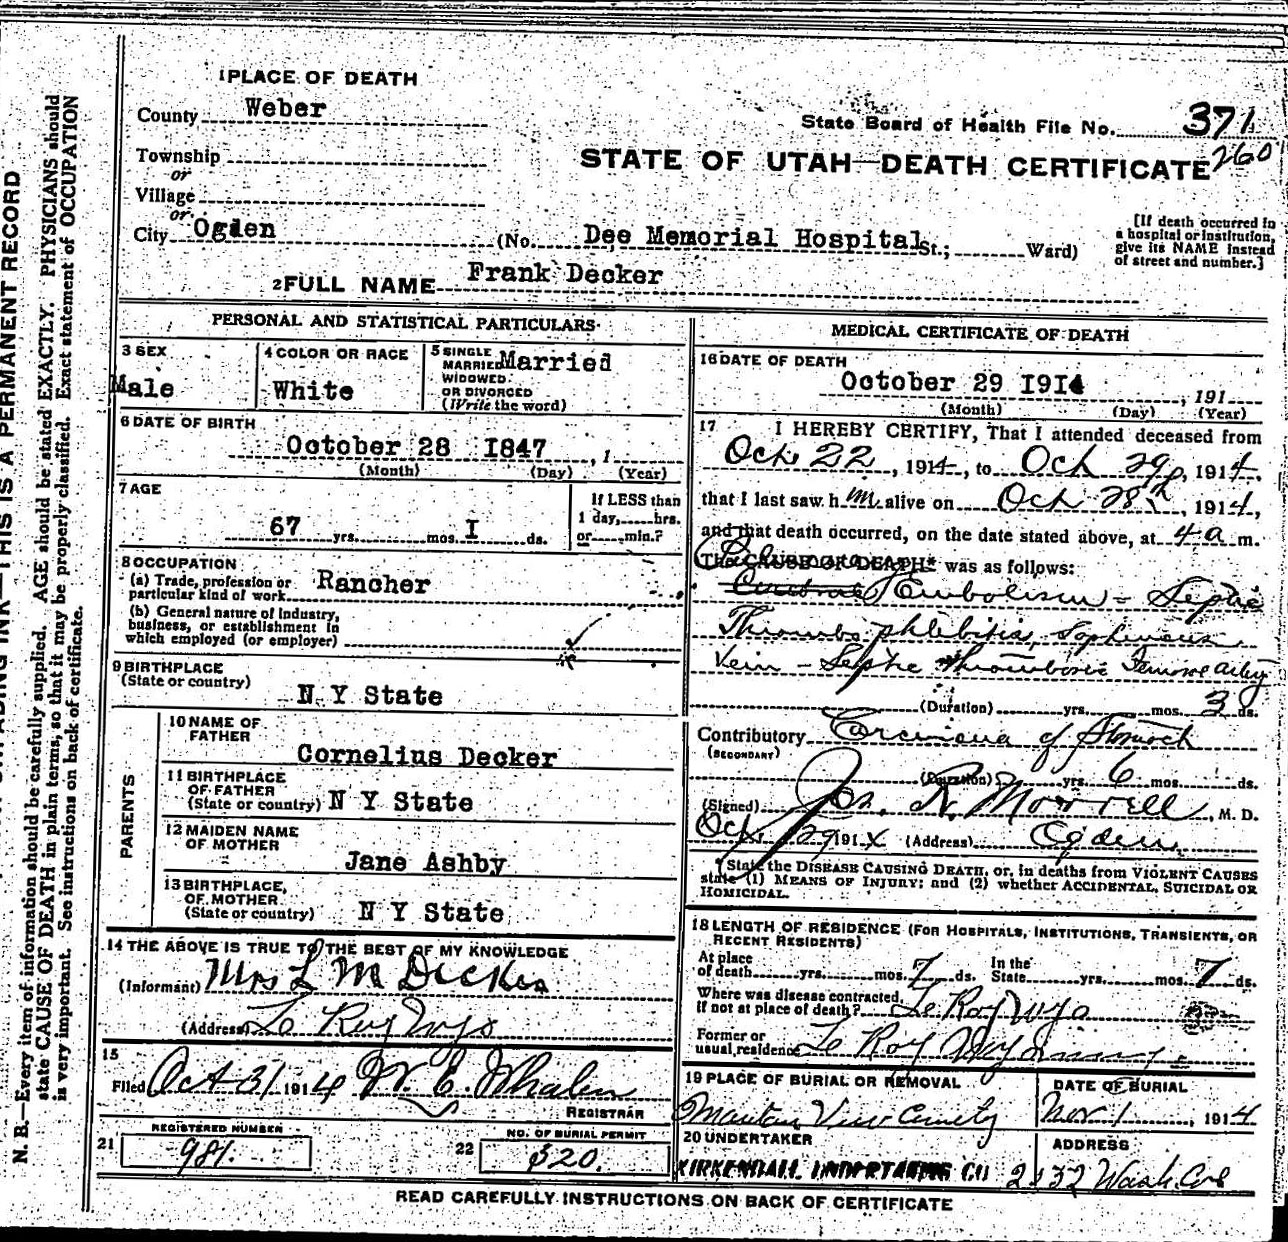 1 PLACE OF DEATH
County Weber
State Board of Health File No. 371
Township
STATE OF UTAH—DEATH CERTIFICATE 260
or
Village
or
City Ogden (No. Dee Memorial Hospital St.; Ward)
[If death occurred in a hospital or institution, give its NAME instead of street and number.]
2 FULL NAME Frank Decker
PERSONAL AND STATISTICAL PARTICULARS
3 SEX
Male
4 COLOR OR RACE
White
5 SINGLE
MARRIED
WIDOWED
OR DIVORCED
(Write the word)
Married
6 DATE OF BIRTH
October 28 1847 , 1
(Month) (Day) (Year)
7 AGE
67 yrs. mos. I ds.
If LESS than
1 day, hrs.
or min.?
8 OCCUPATION
(a) Trade, profession or
particular kind of work Rancher
(b) General nature of Industry,
business, or establishment in
which employed (or employer)
9 BIRTHPLACE
(State or country)
N Y State
PARENTS
10 NAME OF
FATHER
Cornelius Decker
11 BIRTHPLACE
OF FATHER
(State or country) N Y State
12 MAIDEN NAME
OF MOTHER
Jane Ashby
13 BIRTHPLACE,
OF MOTHER
(State or country) N Y State
14 THE ABOVE IS TRUE TO THE BEST OF MY KNOWLEDGE
(Informant) Mrs L M Decker
(Address) Le Roy Wyo
15
Filed Oct 31 1914 W. E. Whalen
REGISTRAR
21 REGISTERED NUMBER
981.
22 NO. OF BURIAL PERMIT
320.
MEDICAL CERTIFICATE OF DEATH
16 DATE OF DEATH
October 29 1914 , 191
(Month) (Day) (Year)
17 I HEREBY CERTIFY, That I attended deceased from
Oct 22, 1914, to Oct 29, 1914,
that I last saw h im alive on Oct 28th, 1914,
and that death occurred, on the date stated above, at 4 a m.
The CAUSE OF DEATH* was as follows:
Cerebral Embolism - Septic
Thrombo phlebitis, Saphenous
Vein - Septic Thrombosis Femoral artery
(Duration) yrs. mos. 3 ds.
Contributory Carcinoma of Stomach
(SECONDARY)
(Duration) yrs. 6 mos. ds.
(Signed) Jos. R. Morrell, M. D.
Oct 29 191 4 (Address) Ogden
*State the DISEASE CAUSING DEATH, or, in deaths from VIOLENT CAUSES
state (1) MEANS OF INJURY; and (2) whether ACCIDENTAL, SUICIDAL OR
HOMICIDAL.
18 LENGTH OF RESIDENCE (FOR HOSPITALS, INSTITUTIONS, TRANSIENTS, OR
RECENT RESIDENTS)
At place
of death yrs. mos. 7 ds.
In the
State yrs. mos. 7 ds.
Where was disease contracted,
if not at place of death? Le Roy Wyo
Former or
usual residence Le Roy Wyoming
19 PLACE OF BURIAL OR REMOVAL
Mountain View Cemetery
DATE OF BURIAL
Nov 1, 1914
20 UNDERTAKER
KIRKENDALL UNDERTAKING CO
ADDRESS
2132 Wash. Ave
READ CAREFULLY INSTRUCTIONS ON BACK OF CERTIFICATE
THIS IS A PERMANENT RECORD
N. B.—Every item of information should be carefully supplied. AGE should be stated EXACTLY. PHYSICIANS should
state CAUSE OF DEATH in plain terms, so that it may be properly classified. Exact statement of OCCUPATION
is very important. See instructions on back of certificate.